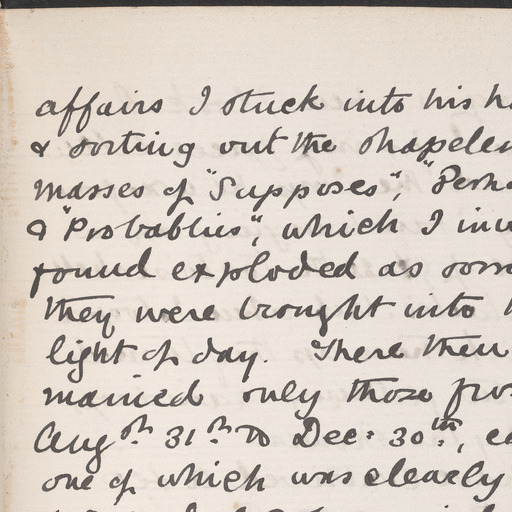 affairs I stuck into his h
& sorting out the shapeles
masses of "Supposes", "Perh
& "Probablies", which I inv
found exploded as soon
they were brought into
light of day. There then
married only those fro
Augst 31st to Dec: 30th, ea
one of which was clearly